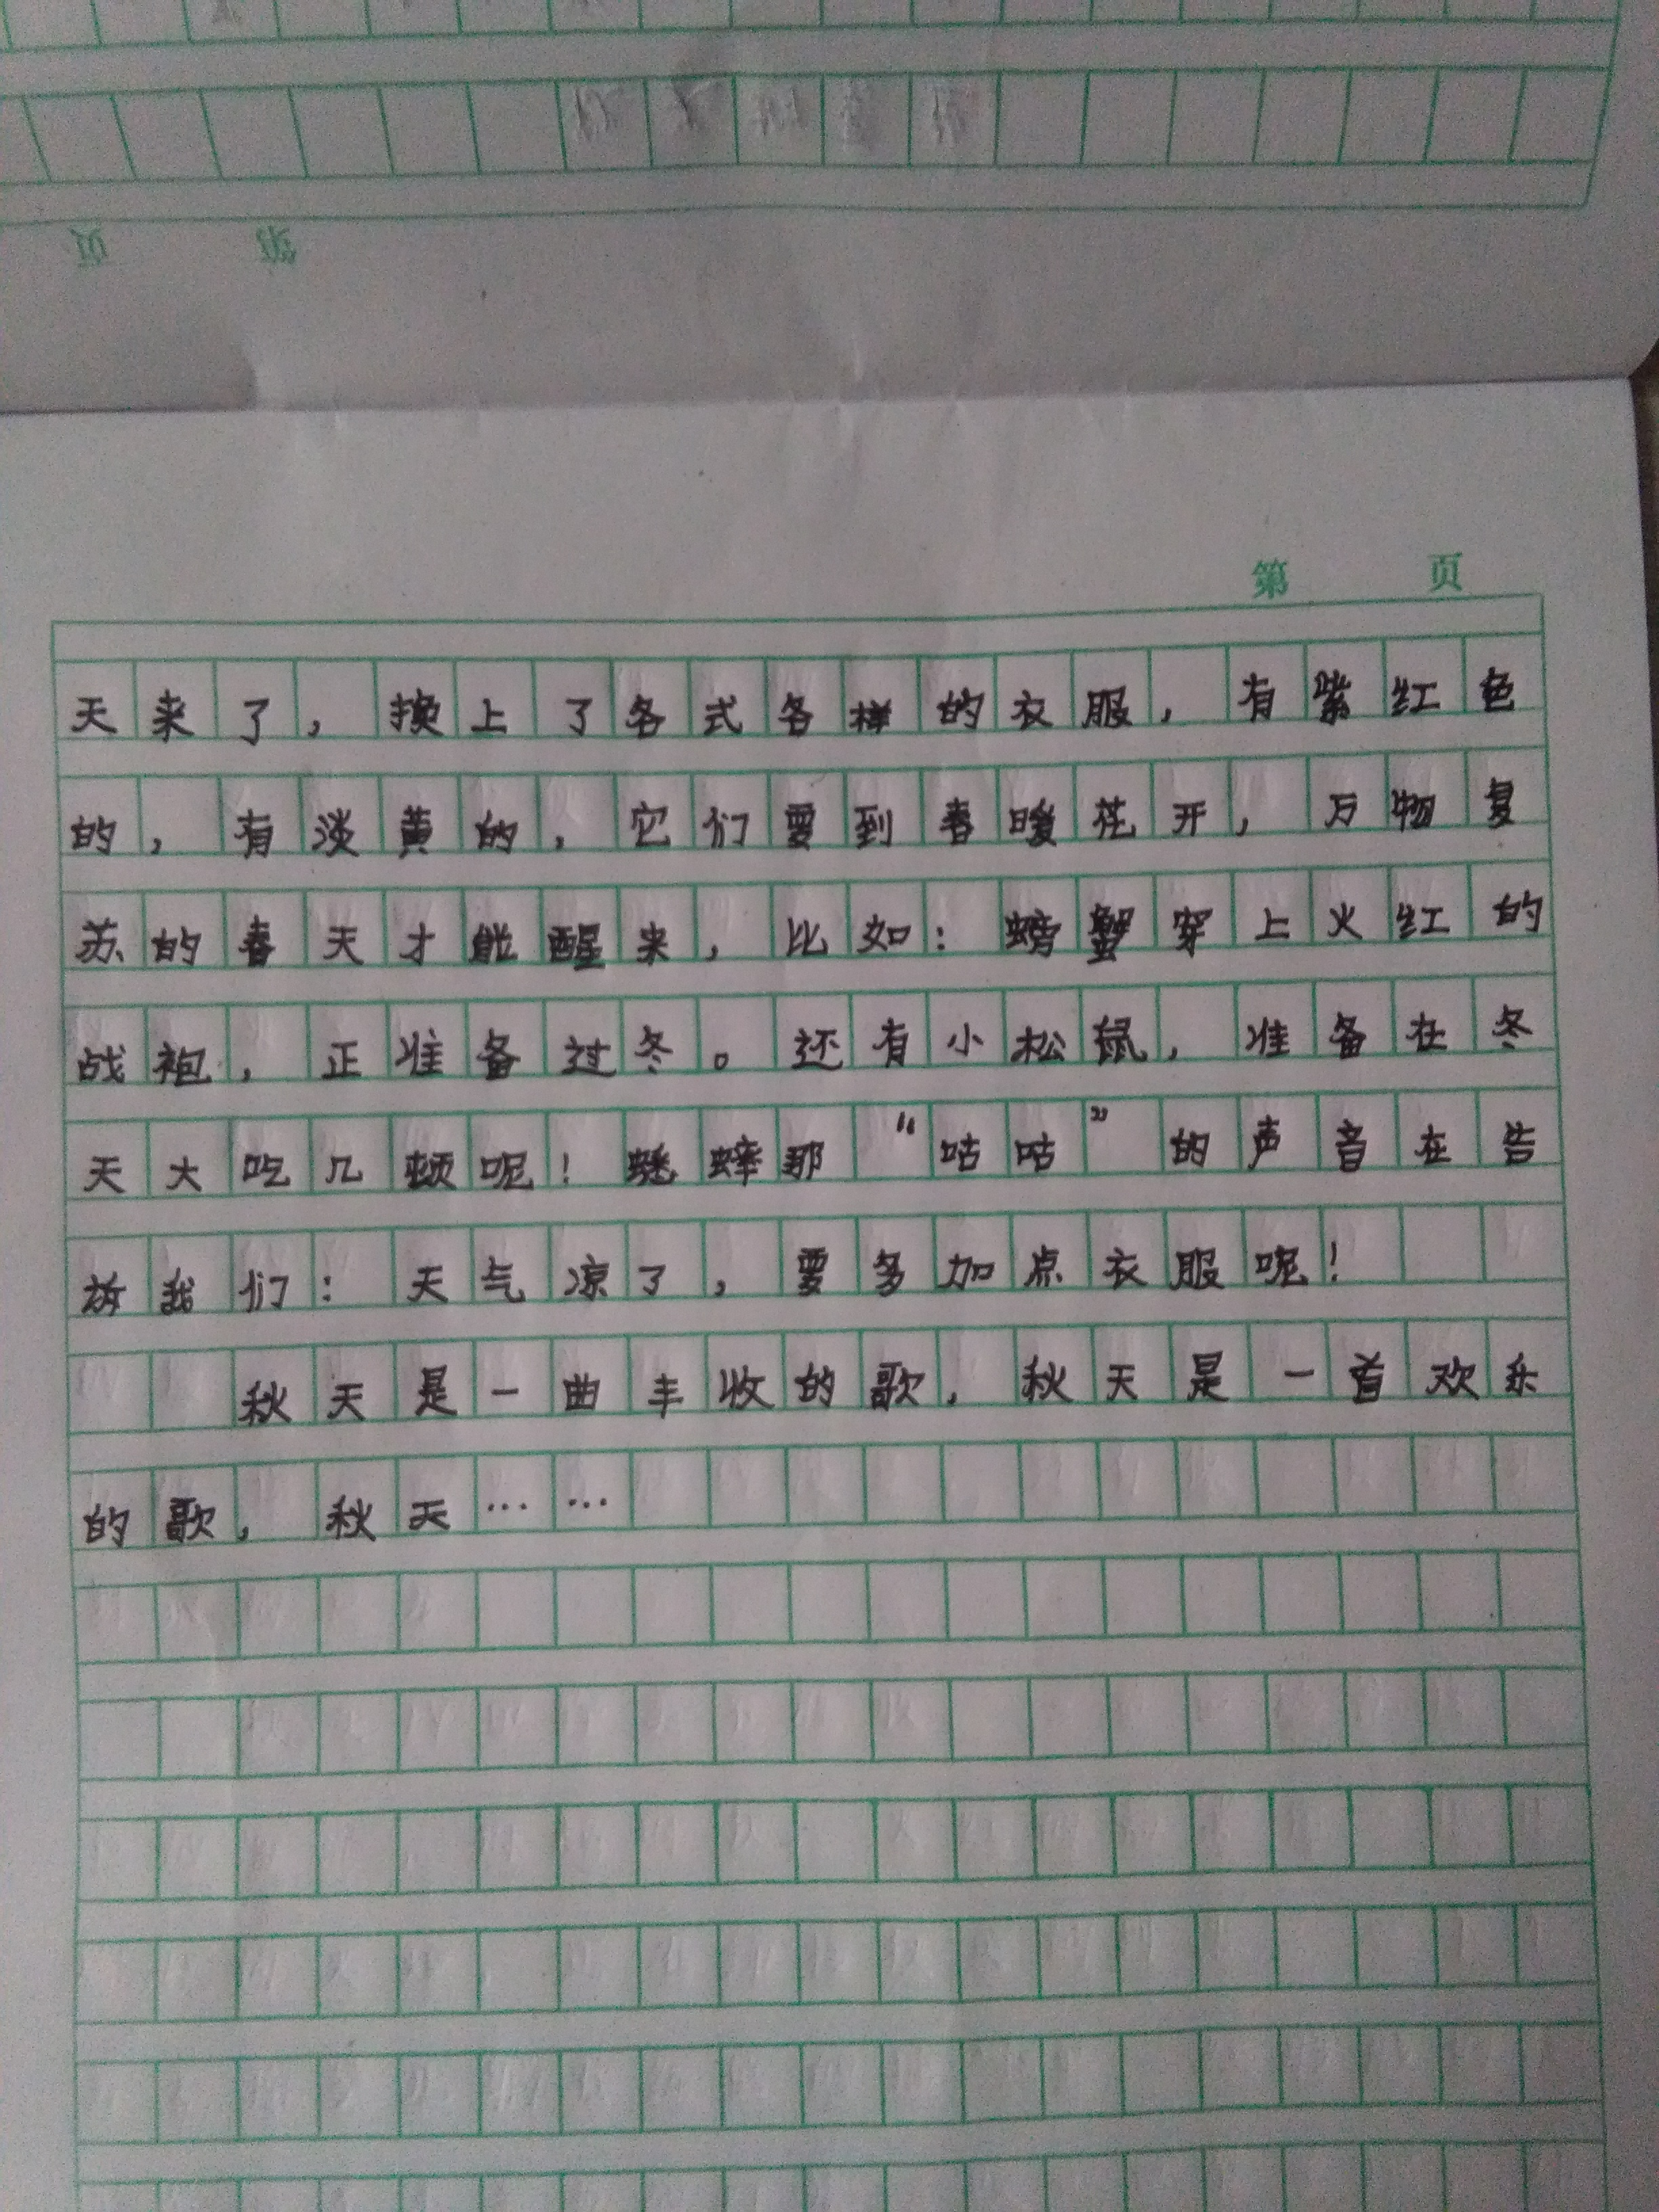 第 页
第 页
天来了，换上了各式各样的衣服，有紫红色
的，有淡黄的，它们要到春暖花开，万物复
苏的春天才能醒来，比如：螃蟹穿上火红的
战袍，正准备过冬。还有小松鼠，准备在冬
天大吃几顿呢！蟋蟀那“咕咕”的声音在告
放我们：天气凉了，要多加点衣服呢！
秋天是一曲丰收的歌，秋天是一首欢乐
的歌，秋天……